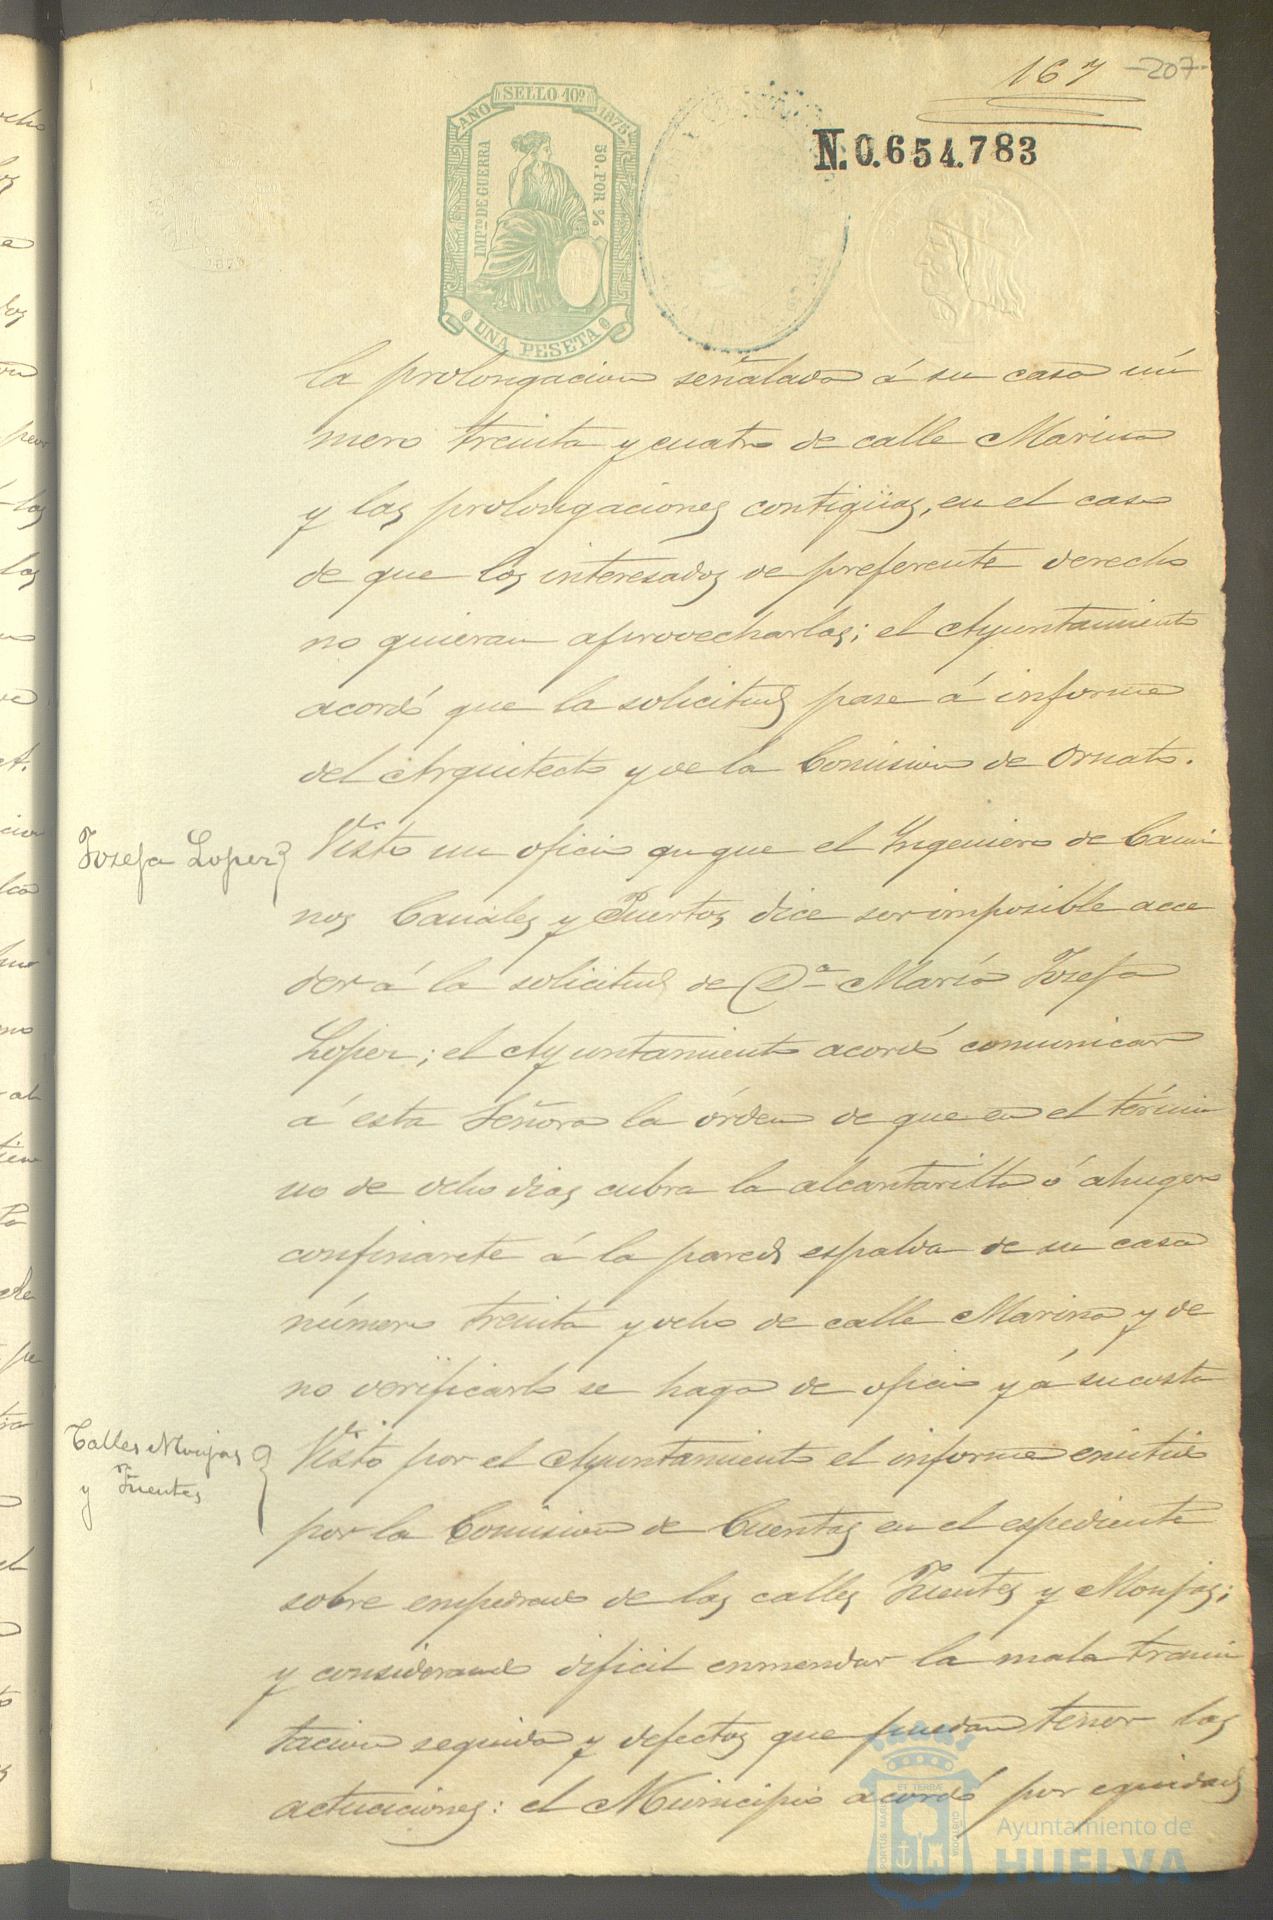 167 -207-
AÑO SELLO 10º 1875
IMPTO DE GUERRA
50. POR %
UNA PESETA
N. 0.654.783
1875
la prolongacion señalada á su casa nú
mero treinta y cuatro de calle Marina
y las prolongaciones contigüas, en el caso
de que los interesados de preferente derecho
no quieran aprovecharlas; el Ayuntamiento
acordó que la solicitud pase á informe
del Arquitecto y de la Comision de Ornato.
Josefa Lopez
Visto un oficio en que el Ingeniero de Cami
nos Canales y Puertos, dice ser imposible acce
der á la solicitud de Dª María Josefa
Lopez; el Ayuntamiento acordó comunicar
á esta Señora la órden de que en el térmi
no de ocho dias cubra la alcantarilla ó ahugero
confinante á la pared espalda de su casa
número treinta y ocho de calle Marina y de
no verificarlo se haga de oficio y á su costa
Calles Monjas
y Fuentes
Visto por el Ayuntamiento el informe emitido
por la Comision de Cuentas en el espediente
sobre empedrado de las calles Fuentes y Monjas;
y considerando dificil enmendar la mala trami
tacion seguida y defectos que puedan tener las
actuaciones: el Municipio acordó por equidad
Ayuntamiento de
HUELVA